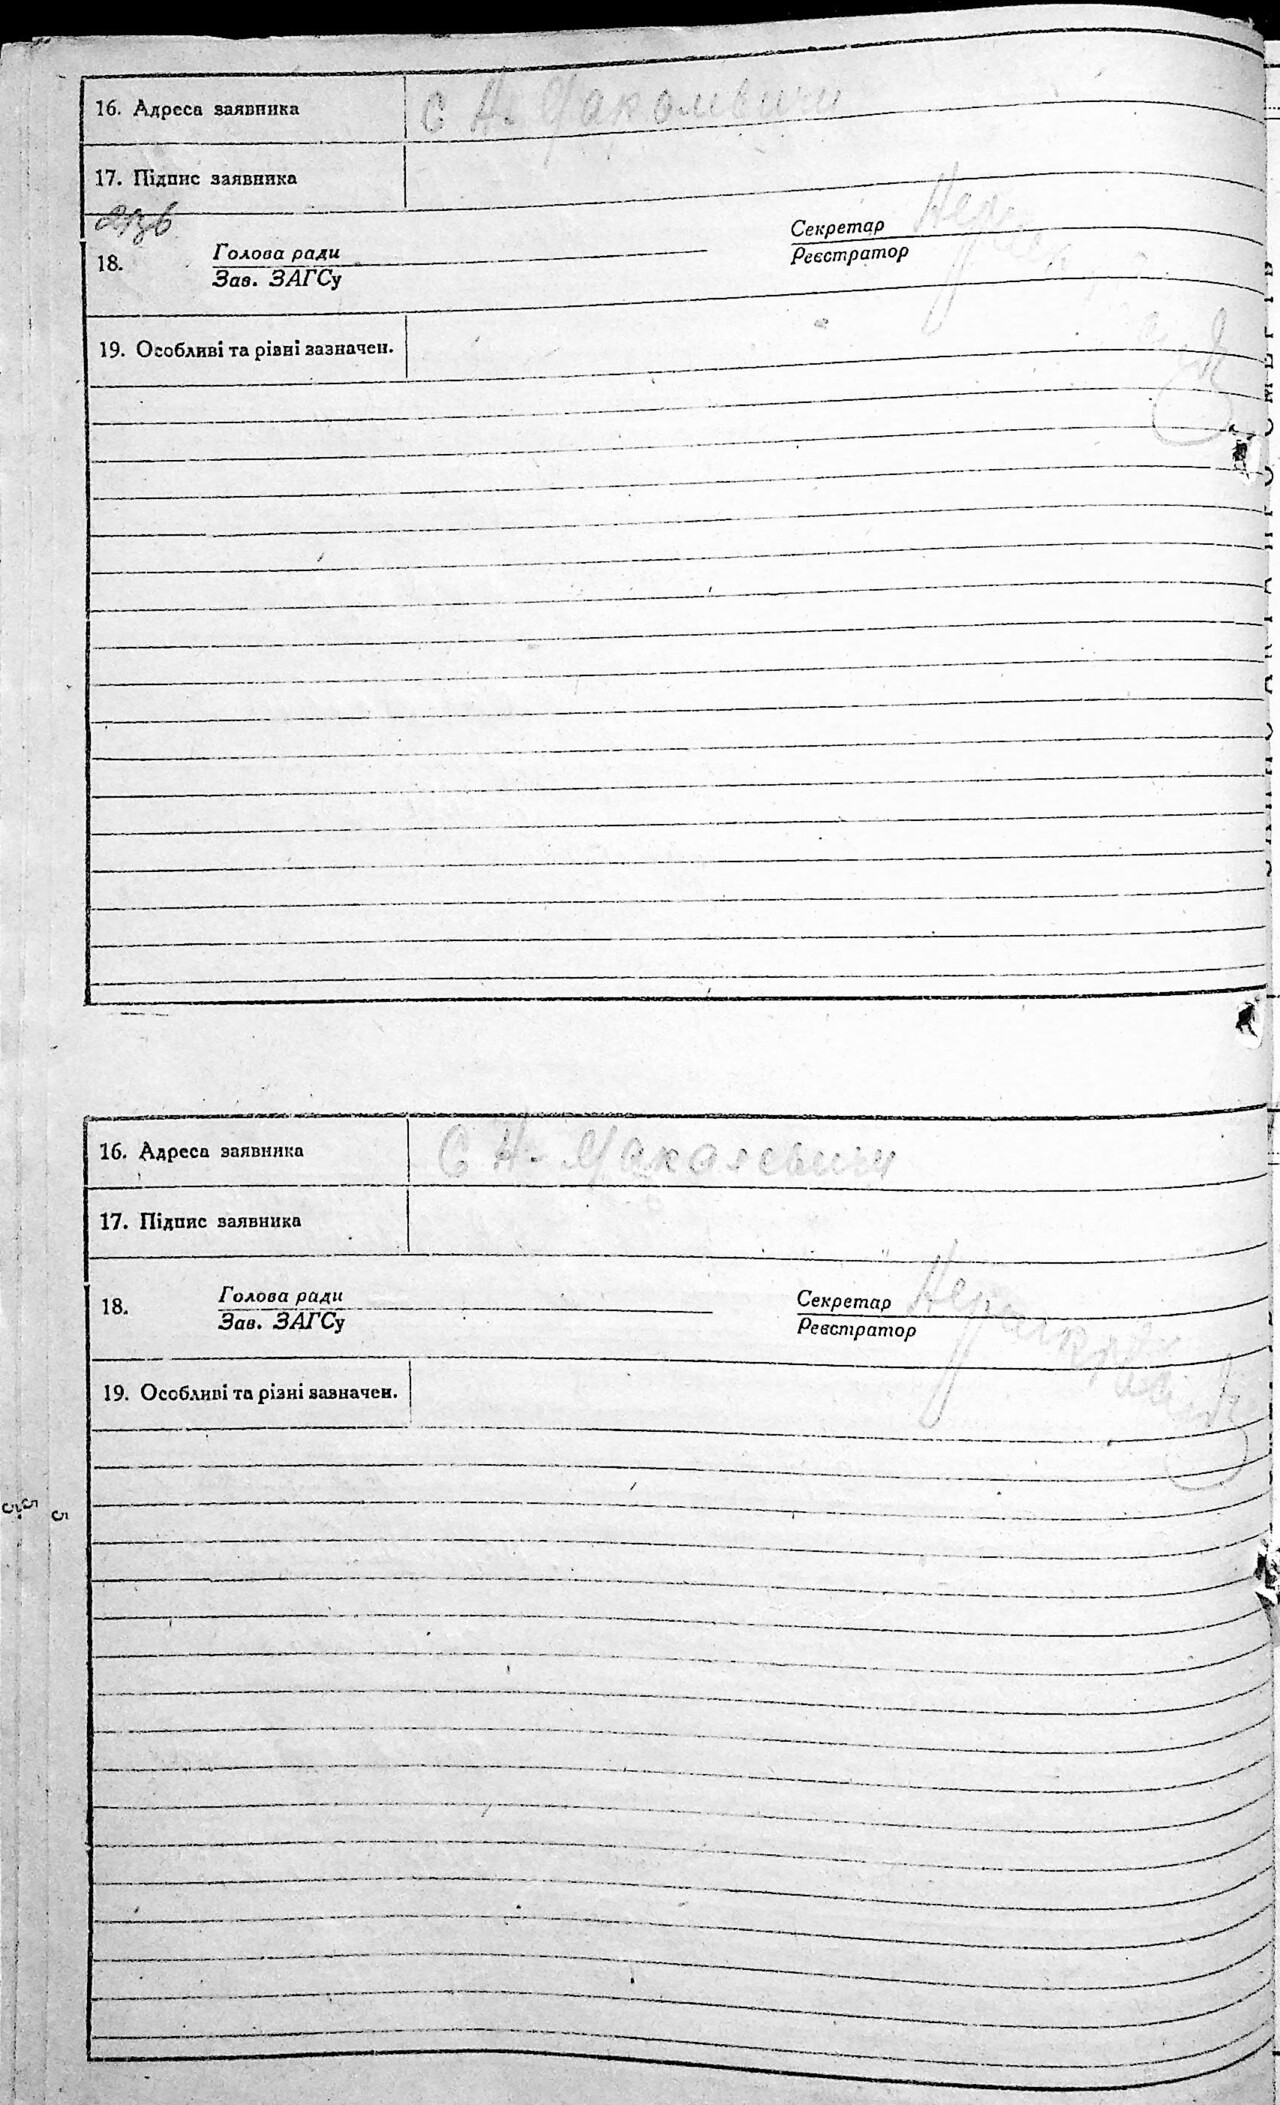 16. Адреса заявника С Н-
17. Підпис заявника
18. Голова ради Секретар
Зав. ЗАГСу Реєстратор
19. Особливі та рівні зазначен.
16. Адреса заявника С Н-
17. Підпис заявника
18. Голова ради Секретар
Зав. ЗАГСу Реєстратор
19. Особливі та різні зазначен.